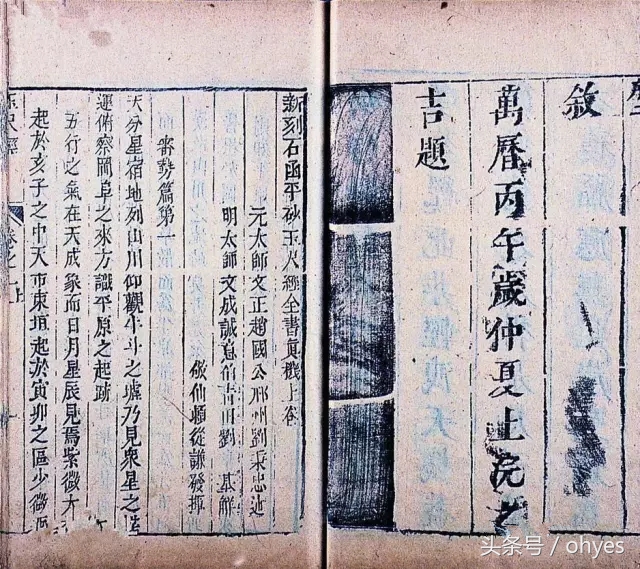 敘
萬曆丙午歲仲夏上浣之
吉題
新刻石函平砂玉尺經全書真機上卷
元太師文正趙國公邢州劉秉忠述
明太師文成誠意伯青田劉 基解
仙賴從謙發揮
審勢篇第一
天分星宿地列山川仰觀牛斗之墟乃見衆星之
運俯察岡阜之來方識平原之起跡
五行之氣在天成象而日月星辰見焉紫微太
起於亥子之中天市東垣起於寅卯之區少微西
尺經 卷之 上
头条号 / ohyes